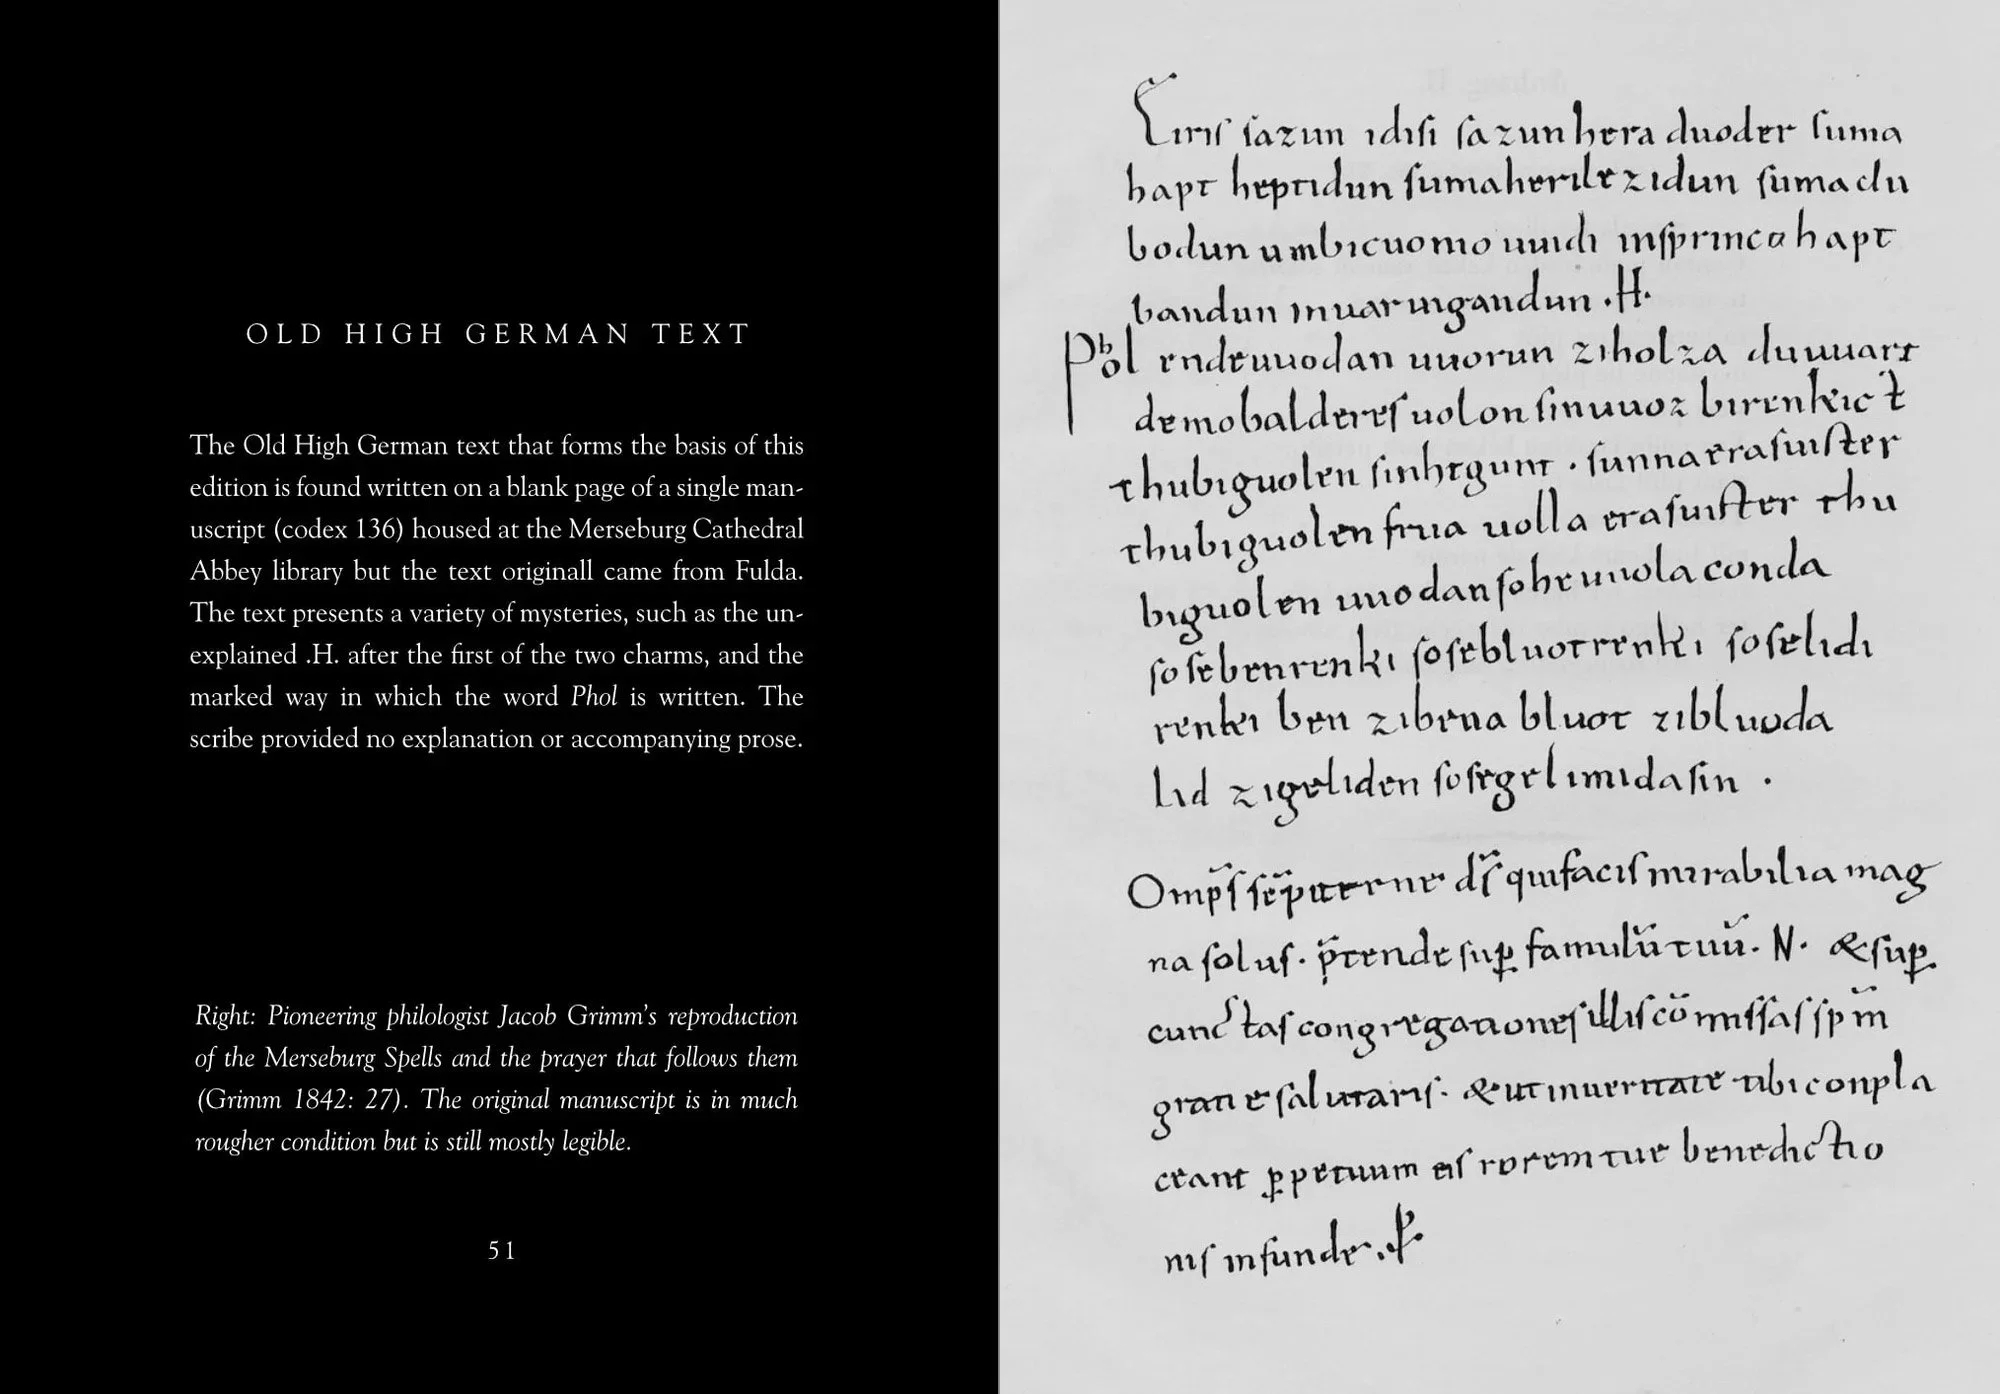 OLD HIGH GERMAN TEXT
The Old High German text that forms the basis of this
edition is found written on a blank page of a single man-
uscript (codex 136) housed at the Merseburg Cathedral
Abbey library but the text originall came from Fulda.
The text presents a variety of mysteries, such as the un-
explained .H. after the first of the two charms, and the
marked way in which the word Phol is written. The
scribe provided no explanation or accompanying prose.
Right: Pioneering philologist Jacob Grimm's reproduction
of the Merseburg Spells and the prayer that follows them
(Grimm 1842: 27). The original manuscript is in much
rougher condition but is still mostly legible.
51
Eiriſ ſazun idiſi ſazunhera duoder ſuma
hapt heptidun ſumaherilezidun ſumaclu
bodun umbicuonio uuidi inſprincahapt
bandun inuaruigandun .H.
Phol endeuuodan uuorun ziholza duuuart
demobaldereſuolon ſinuuoz birenkic t
thubiguolen ſinhtgunt . ſunnaeraſuiſter
thubiguolen friia uolla eraſuiſter thu
biguolen uuodanſoheuuola conda
ſoſebenrenki ſoſebluotrenki ſoſelidi
renki ben zibena bluot zibluoda
lid zigeliden ſoſegelimidaſin .
Omp̄ſ ſēp̄iterne dſ̄ quifaciſmirabilia mag
na ſoluſ. p̄tende ſuꝑ famulū tuū. N. &ſuꝑ
cunctaſ congregationeſ illiſ cōmiſſaſ ſpm̄
gratie ſalutariſ. & ut inueritate tibi conpla
ceant ꝑpetuum eiſ rorem tue benedictio
niſ infunde.